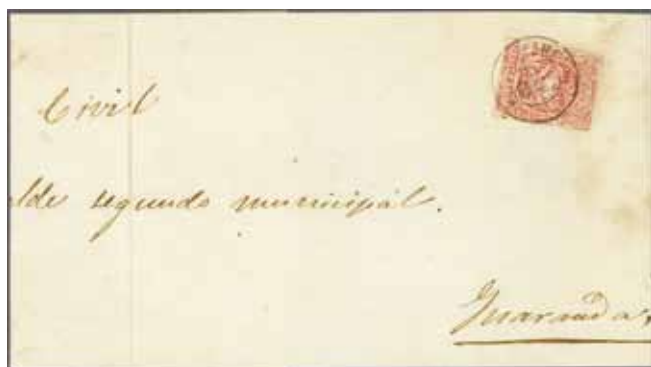 Civil
lde segundo municipal.
Guaranda.